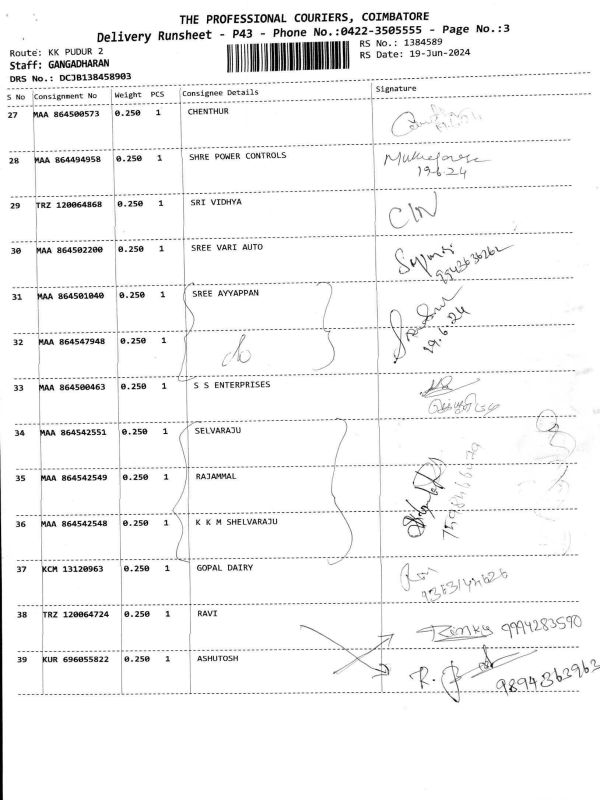 THE PROFESSIONAL COURIERS, COIMBATORE
Delivery Runsheet - P43 - Phone No.:0422-3505555 - Page No.:3
Route: KK PUDUR 2
RS No.: 1384589
Staff: GANGADHARAN
RS Date: 19-Jun-2024
DRS No.: DCJB138458903
S No Consignment No Weight PCS Consignee Details Signature
27 MAA 864500573 0.250 1 CHENTHUR
28 MAA 864494958 0.250 1 SHRE POWER CONTROLS
19.6.24
29 TRZ 120064868 0.250 1 SRI VIDHYA
30 MAA 864502200 0.250 1 SREE VARI AUTO
31 MAA 864501040 0.250 1 SREE AYYAPPAN
19.6.24
32 MAA 864547948 0.250 1 c/o
33 MAA 864500463 0.250 1 S S ENTERPRISES
34 MAA 864542551 0.250 1 SELVARAJU
35 MAA 864542549 0.250 1 RAJAMMAL
36 MAA 864542548 0.250 1 K K M SHELVARAJU
37 KCM 13120963 0.250 1 GOPAL DAIRY
38 TRZ 120064724 0.250 1 RAVI
9994283590
39 KUR 696055822 0.250 1 ASHUTOSH
R.
9894363963